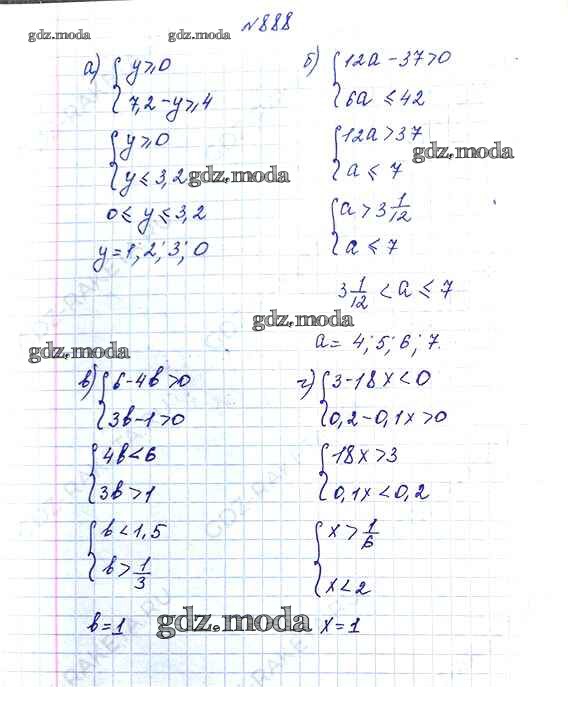 №888
gdz.moda gdz.moda
а) { y ⩾ 0
7,2 - y ⩾ 4
{ y ⩾ 0
y ⩽ 3,2 gdz.moda
0 ⩽ y ⩽ 3,2
y = 1; 2; 3; 0
б) { 12a - 37 > 0
6a ⩽ 42
{ 12a > 37
gdz.moda
a ⩽ 7
{ a > 3 1/12
a ⩽ 7
3 1/12 < a ⩽ 7
gdz.moda
a = 4; 5; 6; 7.
gdz.moda
в) { 6 - 4b > 0
3b - 1 > 0
{ 4b < 6
3b > 1
{ b < 1,5
b > 1/3
b = 1
gdz.moda
г) { 3 - 18x < 0
0,2 - 0,1x > 0
{ 18x > 3
0,1x < 0,2
{ x > 1/6
x < 2
x = 1